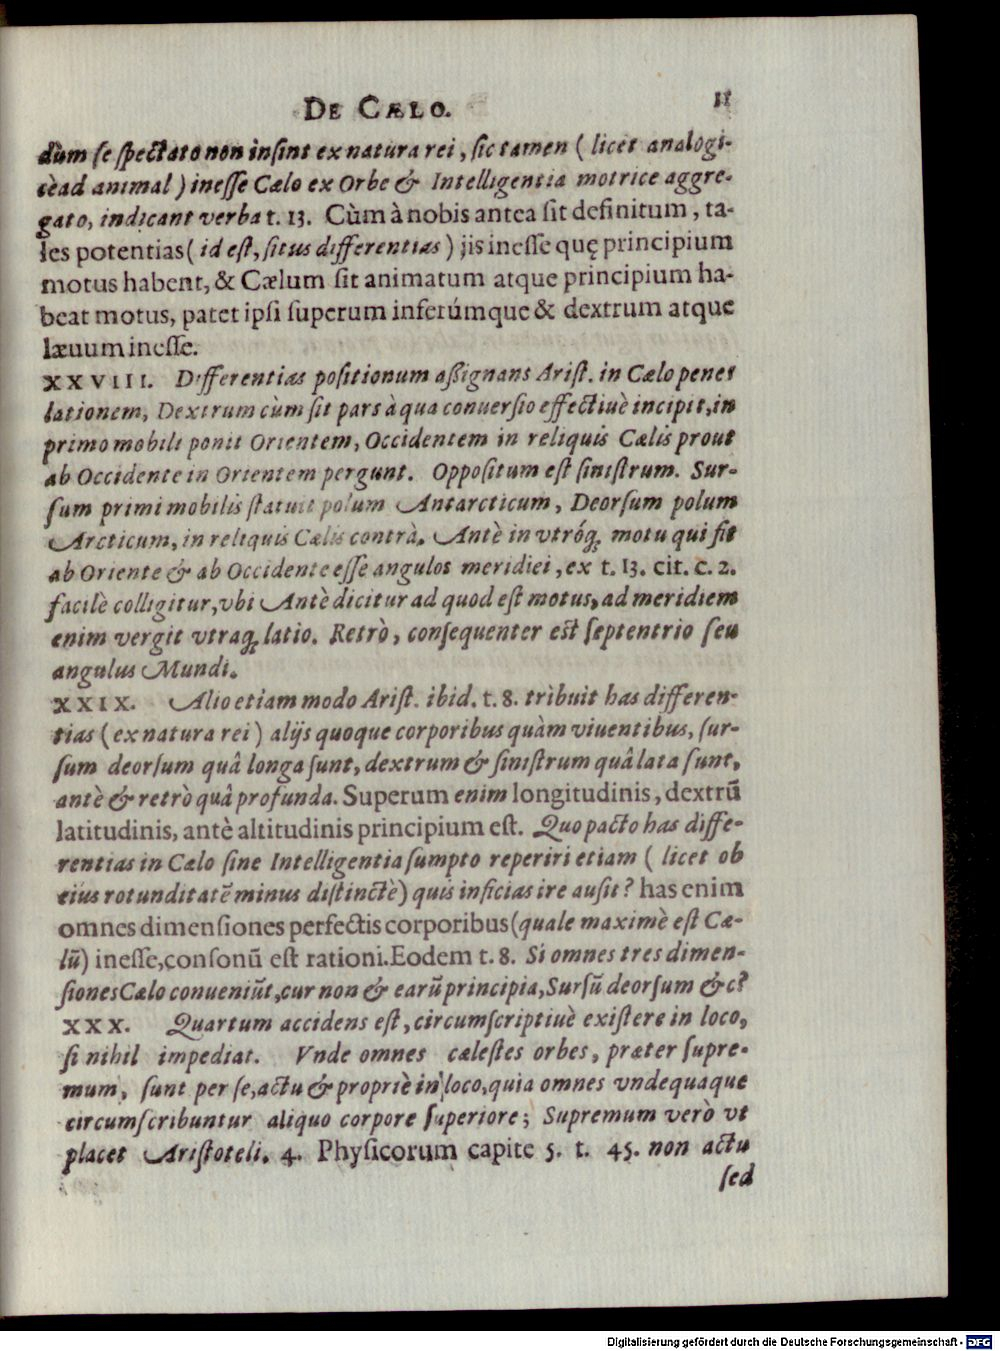 DE CÆLO. 11
dùm ſe ſpectato non inſint ex natura rei, ſic tamen (licet analogi-
cè ad animal) ineſſe Cælo ex Orbe & Intelligentia motrice aggre-
gato, indicant verba t. 13. Cùm à nobis antea ſit definitum, ta-
les potentias (id eſt, ſitus differentias) jis ineſſe quę principium
motus habent, & Cælum ſit animatum atque principium ha-
beat motus, patet ipſi ſuperum inferúmque & dextrum atque
læuum ineſſe.
XXVIII. Differentias poſitionum aſſignans Ariſt. in Cælo penes
lationem, Dextrum cùm ſit pars à qua conuerſio effectiuè incipit, in
primo mobili ponit Orientem, Occidentem in reliquis Cælis prout
ab Occidente in Orientem pergunt. Oppoſitum eſt ſiniſtrum. Sur-
ſum primi mobilis ſtatuit polum Antarcticum, Deorſum polum
Arcticum, in reliquis Cælis contrà. Antè in vtróq; motu qui fit
ab Oriente & ab Occidente eſſe angulos meridiei, ex t. 13. cit. c. 2.
facilè colligitur, vbi Antè dicitur ad quod eſt motus, ad meridiem
enim vergit vtraq; latio. Retrò, conſequenter eſt ſeptentrio ſeu
angulus Mundi.
XXIX. Alio etiam modo Ariſt. ibid. t. 8. tribuit has differen-
tias (ex natura rei) alijs quoque corporibus quàm viuentibus, ſur-
ſum deorſum quâ longa ſunt, dextrum & ſiniſtrum quâ lata ſunt,
antè & retrò quâ profunda. Superum enim longitudinis, dextrũ
latitudinis, antè altitudinis principium eſt. Quo pacto has diffe-
rentias in Cælo ſine Intelligentia ſumpto reperiri etiam (licet ob
eius rotunditatẽ minus diſtinctè) quis inficias ire auſit? has enim
omnes dimenſiones perfectis corporibus (quale maximè eſt Cæ-
lũ) ineſſe, conſonũ eſt rationi. Eodem t. 8. Si omnes tres dimen-
ſiones Cælo conueniũt, cur non & earũ principia, Surſũ deorſum & c?
XXX. Quartum accidens eſt, circumſcriptiuè exiſtere in loco,
ſi nihil impediat. Vnde omnes cæleſtes orbes, præter ſupre-
mum, ſunt per ſe, actu & propriè in loco, quia omnes vndequaque
circumſcribuntur aliquo corpore ſuperiore; Supremum verò vt
placet Ariſtoteli. 4. Phyſicorum capite 5. t. 45. non actu
ſed
Digitalisierung gefördert durch die Deutsche Forschungsgemeinschaft - DFG